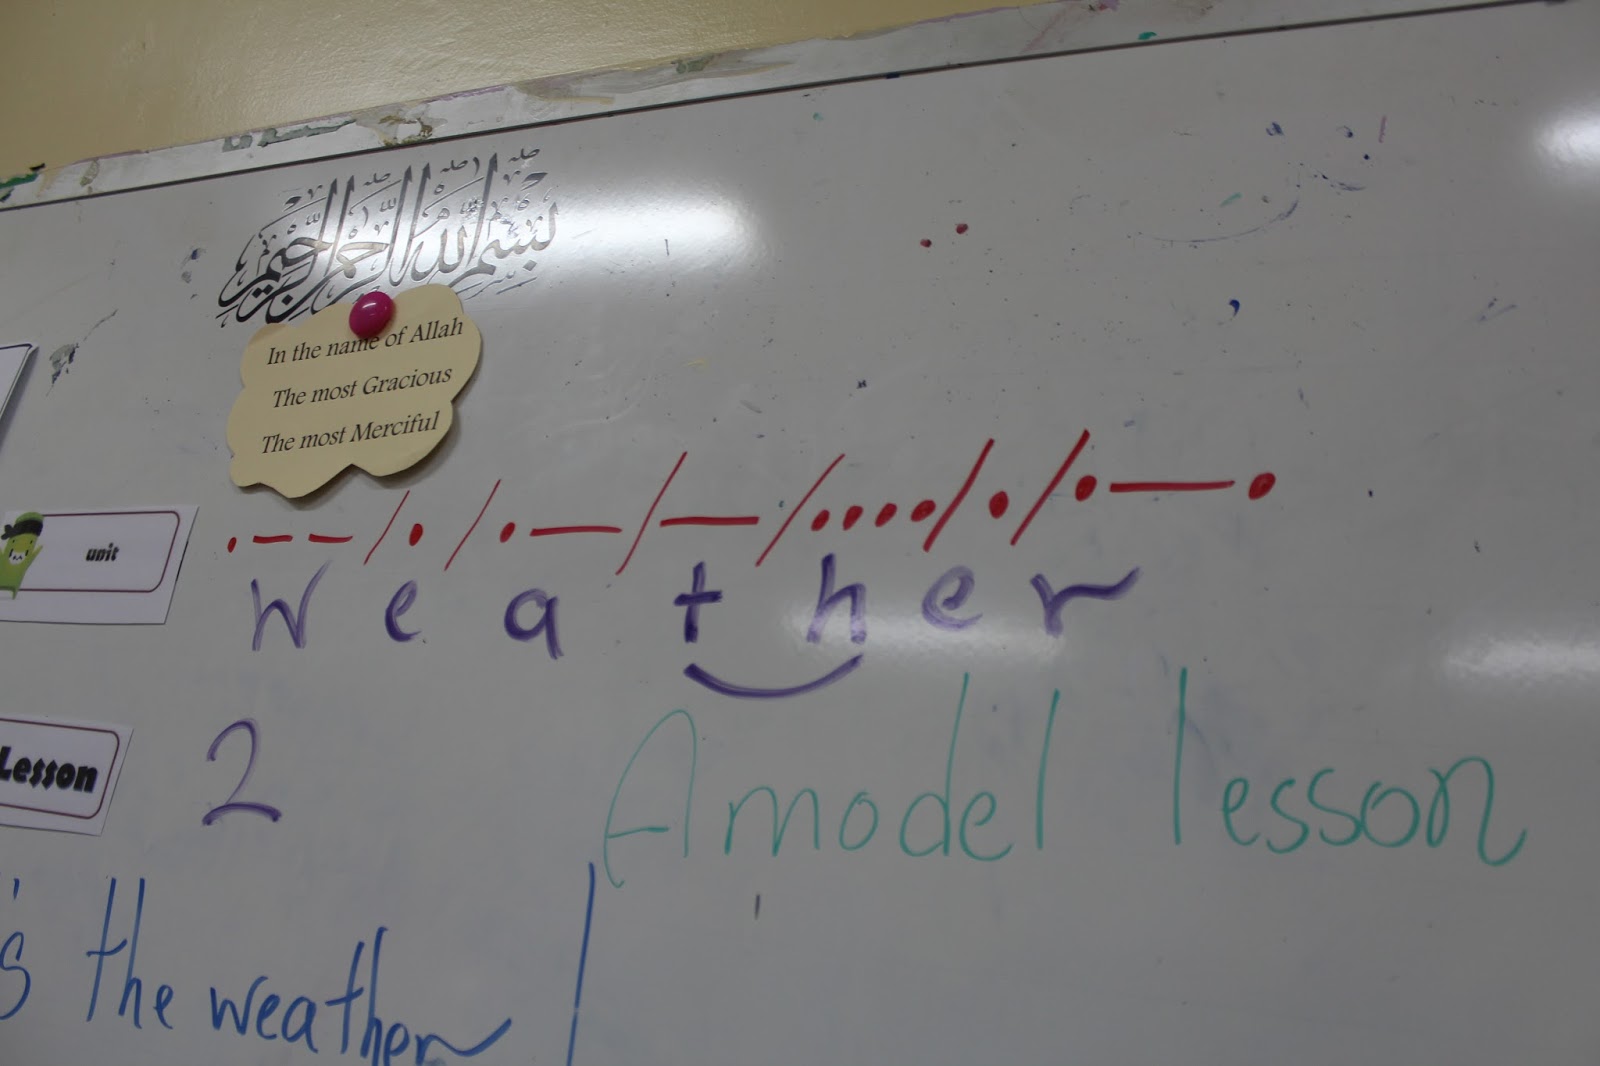 بسم الله الرحمن الرحيم
In the name of Allah
The most Gracious
The most Merciful
.--/./.-/-/..../././.-.
unit
weather
Lesson
2
A model lesson
's the weather